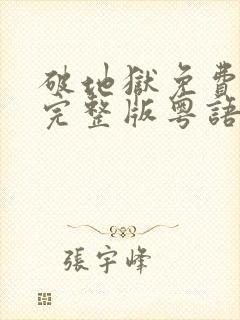 破地獄免費
完整版粵語
張宇峰